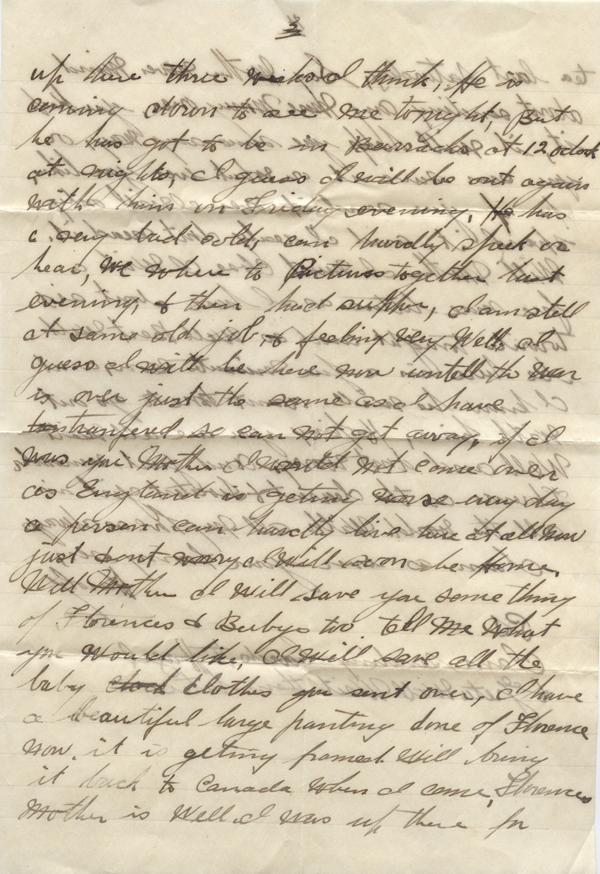 3
up there three weeks I think, He is
coming down to see me tonight, But
he has got to be in Barracks at 12 oclock
at nights, I guess I will be out again
with him on Friday evening, He has
a very bad cold, can hardly speak or
hear, We where to Pictures together last
evening, & then had supper, I am still
at same old job, & feeling very Well, I
guess I will be here now untell th war
is over just the same as I have
tranfered so can not get away, if I
was you Mother I would not come over
as England is getting worse every day
a person can hardly live here at all now
just dont worry I Will soon be Home,
Well Mother I Will save you something
of Florences & Babys too. tell Me What
you Would like, I Will save all the
baby clothes you sent over, I have
a beautiful large panting done of Florence
now. it is getting framed. Will bring
it back to Canada When I come, Florences
Mother is Well I was up there for